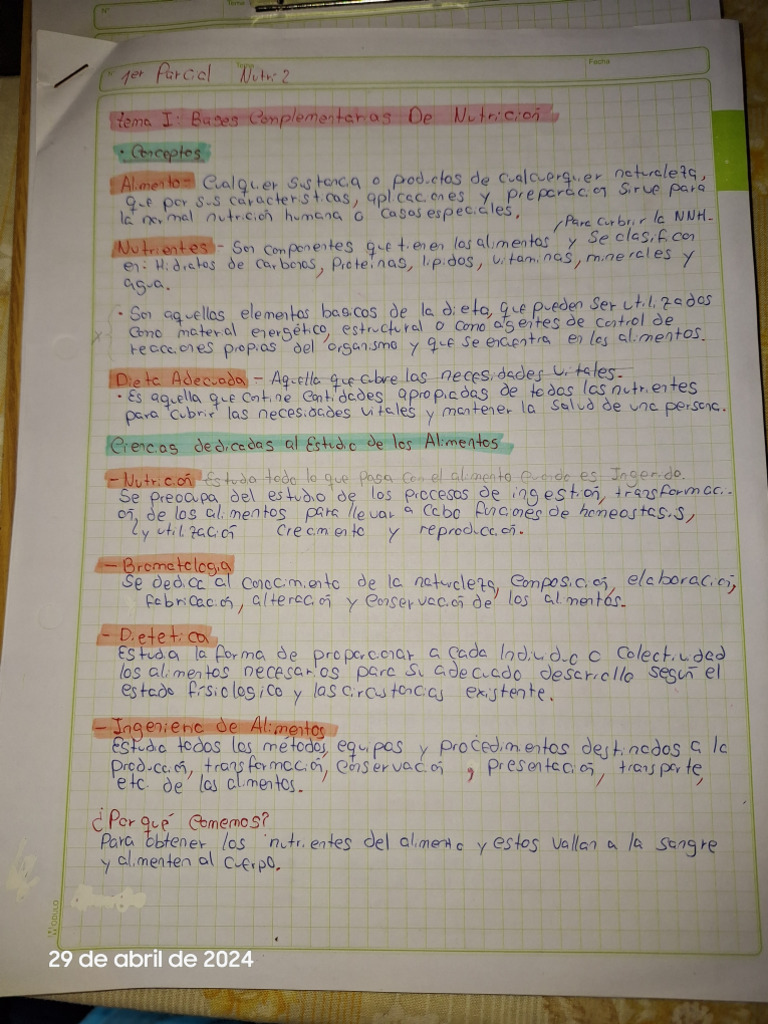 N° Tema
N° 1er Parcial Tema Nutri 2 Fecha
tema I: Bases Complementarias De Nutrición
• Conceptos
Alimento - Cualquier sustancia o productos de cualcuerquier naturaleza,
que por sus características, aplicaciones y preparación sirve para
la normal nutrición humana o casos especiales.
, Para curbrir la NNH-
Nutrientes - Son componentes que tienen los alimentos y se clasifican
en: Hidratos de carbonos, proteínas, lipidos, vitaminas, minerales y
agua.
• Son aquellos elementos basicos de la dieta, que pueden ser utilizados
x como material energético, estructural o como agentes de control de
reacciones propias del organismo y que se encuentra en los alimentos.
Dieta Adecuada - Aquella que cubre las necesidades vitales.
• Es aquella que contine cantidades apropiadas de todos los nutrientes
para cubrir las necesidades vitales y mantener la salud de una persona.
Ciencias dedicadas al Estudio de los Alimentos
- Nutrición Estudia todo lo que pasa con el alimento cuando es Ingerido.
Se preocupa del estudio de los procesos de ingestión, transformaci-
ón, de los alimentos para llevar a cabo funciones de homeostasis,
y utilización crecimento y reproducción.
- Bromatologia
Se dedica al conocimiento de la naturaleza, composición, elaboración,
fabricación, alteración y conservación de los alimentos.
- Dietetica
Estudia la forma de proporcionar a cada Individuo o Colectividad
los alimentos necesarios para su adecuado desarrollo según el
estado fisiologico y las circustancias existente.
- Ingenieria de Alimentos
Estudia todos los métodos, equipos y procedimentos destinados a la
producción, transformación, conservación, presentación, transporte,
etc. de los alimentos.
¿Por qué comemos?
Para obtener los nutrientes del alimento y estos vallan a la sangre
y alimenten al cuerpo.
MÓDULO
29 de abril de 2024